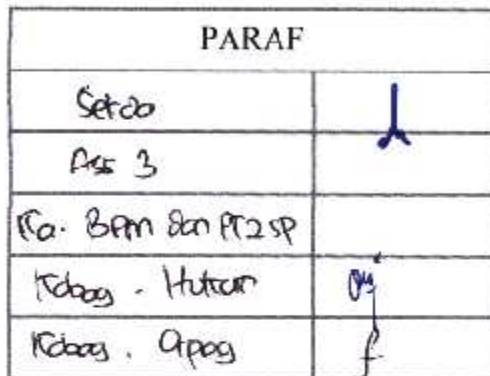 PARAF
Setda
Ass 3
Ka. BPM dan PT2SP
Kabag. Hukum
Kabag.